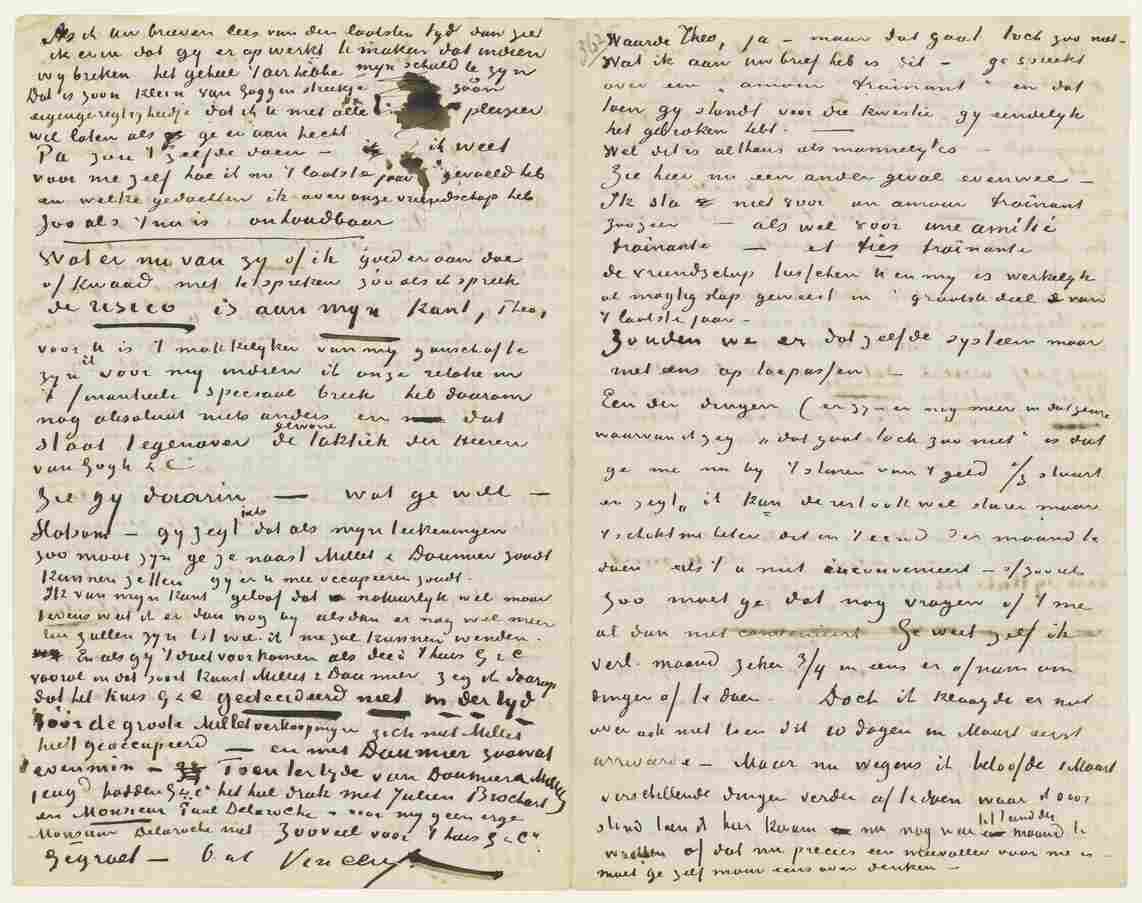 Als ik uw brieven lees van den laatsten tyd dan zie
ik er in dat gy er op werkt te maken dat indien
wy breken het geheel 't air hebbe myn schuld te zyn
Dat is zoon klein van Goggen streekje zoon
eigengeregtigheidje dat ik u met alle plezier
wil laten als ge er aan hecht
Pa zou 't zelfde doen – ik weet
voor me zelf hoe ik nu 't laatste jaar gevoeld heb
en welke gedachten ik over onze vriendschap heb
zoo als 't nu is onhoudbaar
Wat er nu van zy of ik goed er aan doe
of kwaad met te spreken zooals ik spreek
de risico is aan myn kant, Theo,
voor u is 't makkelyker van my
zyn voor my indien ik onze relatie in
't finantieele speciaal breek heb daarom
nog absoluut niets anders en dat
staat tegenover de gewone taktiek der Heeren
van Gogh & C°
Zie gy daarin — wat ge wilt —
Slotsom – gy zegt iets dat als myn teekeningen
zoo mooi zyn ge ze naast Millet & Daumier zoudt
kunnen zetten gy er u mee occupeeren zoudt.
Ik van myn kant geloof dat natuurlyk wel maar
tevens wat ik er dan nog by alsdan er nog wel meer
zullen zyn tot wie ik me zal kunnen wenden.
En als gy 't doet voorkomen als deed 't huis G & C°
vooral in dat soort kunst Millet & Daumier zeg ik daarop
dat het huis G & C° gedecideerd niet in der tyd
vóór de groote Millet verkoopingen zich met Millet
heeft geoccupeerd — en met Daumier zoowat
evenmin – Toen ter tyde van Daumier & Millets
jeugd hadden G & C° het heel druk met Julien Brochart
en Monsieur Paul Delaroche – voor my geen erge
Monsieur Delaroche niet Zooveel voor 't huis G & C°.
Gegroet — t.àt. Vincent
Waarde Theo, ja – maar dat gaat toch zoo niet–
Wat ik aan uw brief heb is dit – ge spreekt
over een „amour trainant" en dat
toen gy stondt voor die kwestie gy eindelyk
het gebroken hebt. —
Wel dit is althans als mannelyk is –
Zie hier nu een ander geval evenwel –
Ik sta niet voor un amour trainant
zoozeer – als wel voor une amitié
trainante — et très trainante
de vriendschap tusschen u en my is werkelyk
al magtig slap geweest in 't grootste deel van
't laatste jaar –
Zouden we er dat zelfde systeem maar
met eens op toepassen –
Een der dingen (er zyn er nog meer in dat genre
waarvan ik zeg „dat gaat toch zoo niet" is dat
ge me nu by 't sturen van 't geld 2/3 stuurt
en zegt „ik kan de rest ook wel sturen maar
't schikt me beter dit in 't eind der maand te
doen als 't u niet inconvenieert – of zooiets
zoo moet ge dat nog vragen of 't me
al dan niet convenieert Ge weet zelf ik
verl. maand zeker 3/4 in eens er afnam om
dingen af te doen. Doch ik klaagde er niet
over ook niet toen dit 10 dagen in Maart eerst
arriveerde – Maar nu wegens ik beloofde 1 Maart
verschillende dingen verder af te doen waar ik voor
stond toen ik hier kwam nu nog weer maand te
wachten of dat nu precies een meevaller voor me is –
moet ge zelf maar eens over denken –